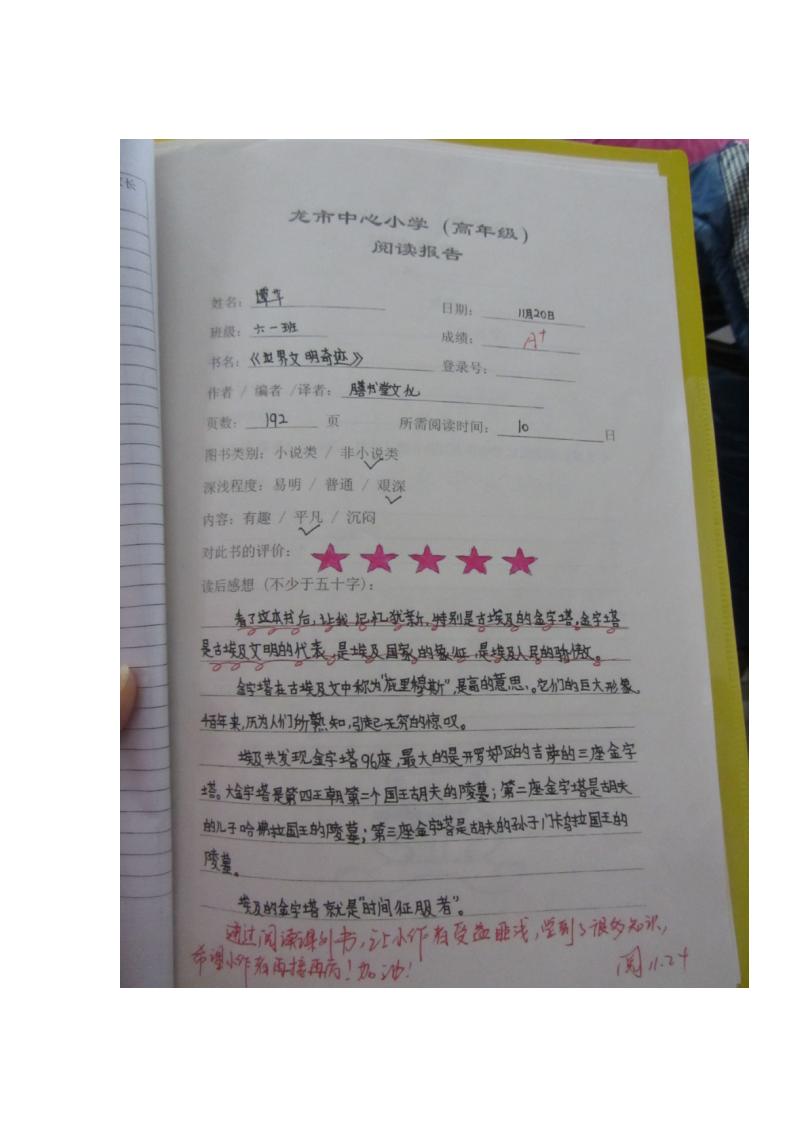 长
龙市中心小学（高年级）
阅读报告
姓名： 谭苹 日期： 11月20日
班级： 六一班 成绩： A+
书名：《世界文明奇迹》 登录号：
作者 / 编者 /译者： 膳书堂文化
页数： 192 页 所需阅读时间： 10 日
图书类别：小说类 / 非小说类
深浅程度：易明 / 普通 / 艰深
内容：有趣 / 平凡 / 沉闷
对此书的评价：
读后感想（不少于五十字）：
看了这本书后，让我记忆犹新，特别是古埃及的金字塔，金字塔
是古埃及文明的代表，是埃及国家的象征，是埃及人民的骄傲。
金字塔在古埃及文中称为"庇里穆斯"，是高的意思。它们的巨大形象，
百年来，历为人们所熟知，引起无穷的惊叹。
埃及共发现金字塔96座，最大的是开罗郊区的吉萨的三座金字
塔。大金字塔是第四王朝第二个国王胡夫的陵墓；第二座金字塔是胡夫
的儿子哈佛拉国王的陵墓；第三座金字塔是胡夫的孙子门卡乌拉国王的
陵墓。
埃及的金字塔就是"时间征服者"。
通过阅读课外书，让小作者受益匪浅，学到了很多知识，
希望小作者再接再厉！加油！ 阅 11.24